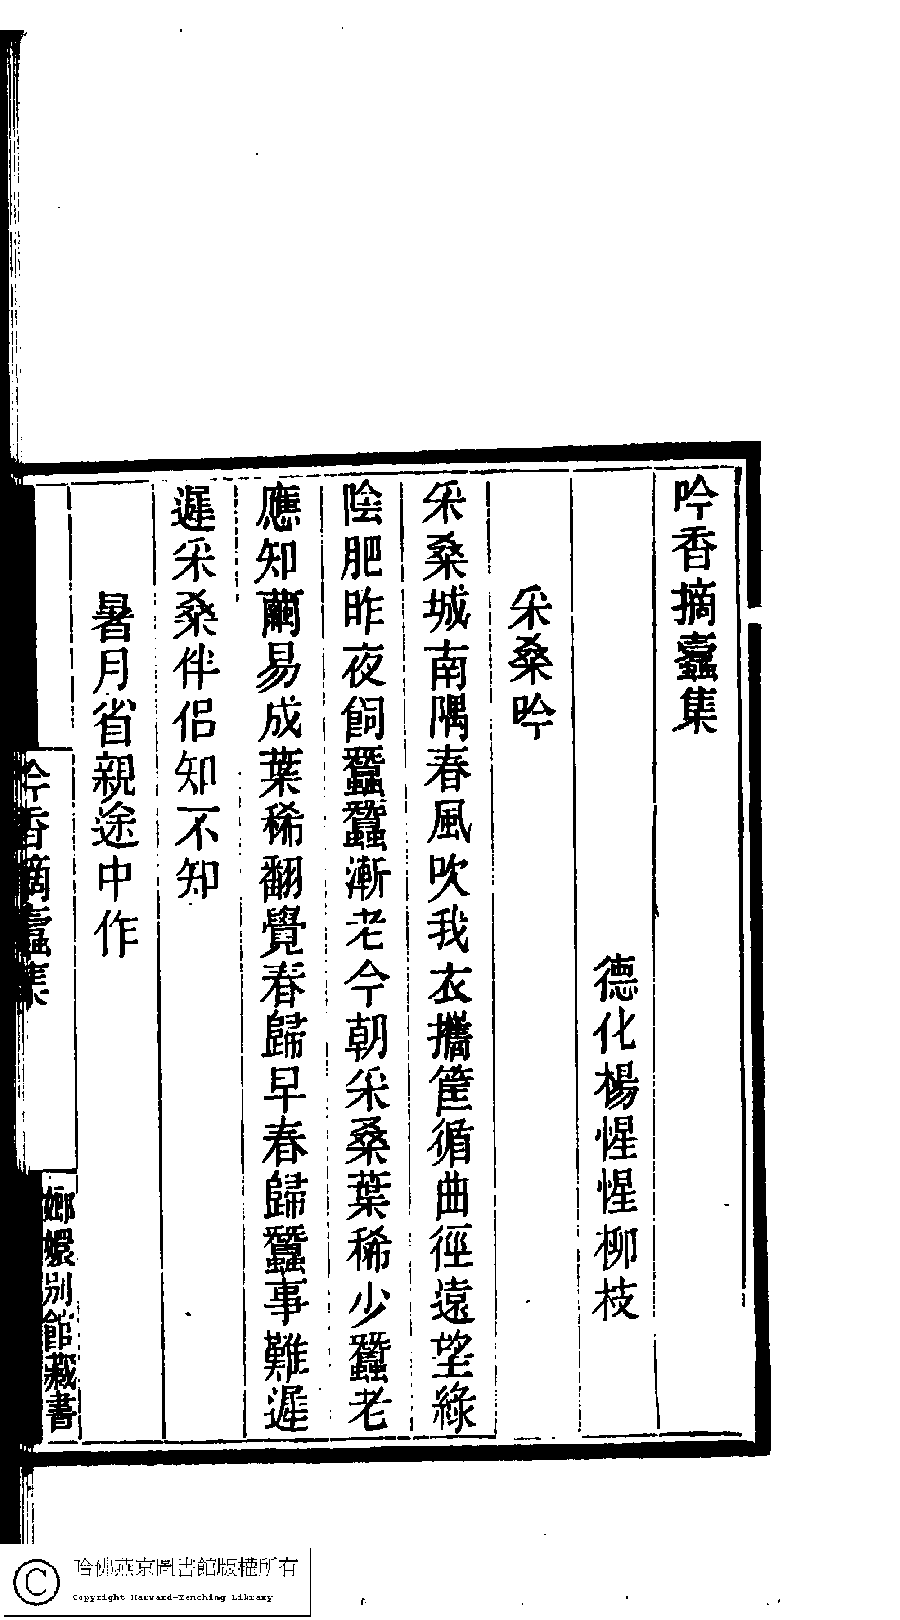 吟香摘蠧集
德化楊惺惺柳枝
采桑吟
采桑城南隅春風吹我衣攜筐循曲徑遠望綠
陰肥昨夜飼蠶蠶漸老今朝采桑葉稀少蠶老
應知繭易成葉稀翻覺春歸早春歸蠶事難遲
遲采桑伴侶知不知
暑月省親途中作
吟香摘蠧集
嫏嬛別館藏書
哈佛燕京圖書館版權所有
Copyright Harvard-Yenching Library